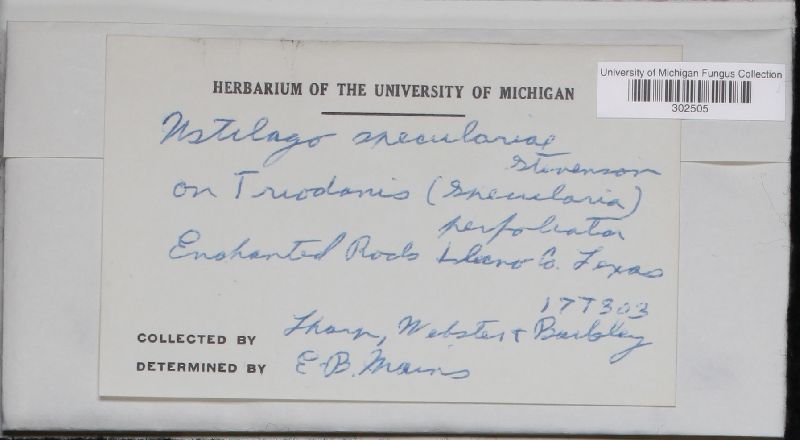 University of Michigan Fungus Collection
302505
HERBARIUM OF THE UNIVERSITY OF MICHIGAN
Ustilago speculariae
Stevenson
on Triodanis (Specularia)
perfoliata
Enchanted Rock Llano Co. Texas
177303
COLLECTED BY Tharp, Webster & Barkley
DETERMINED BY E. B. Mains